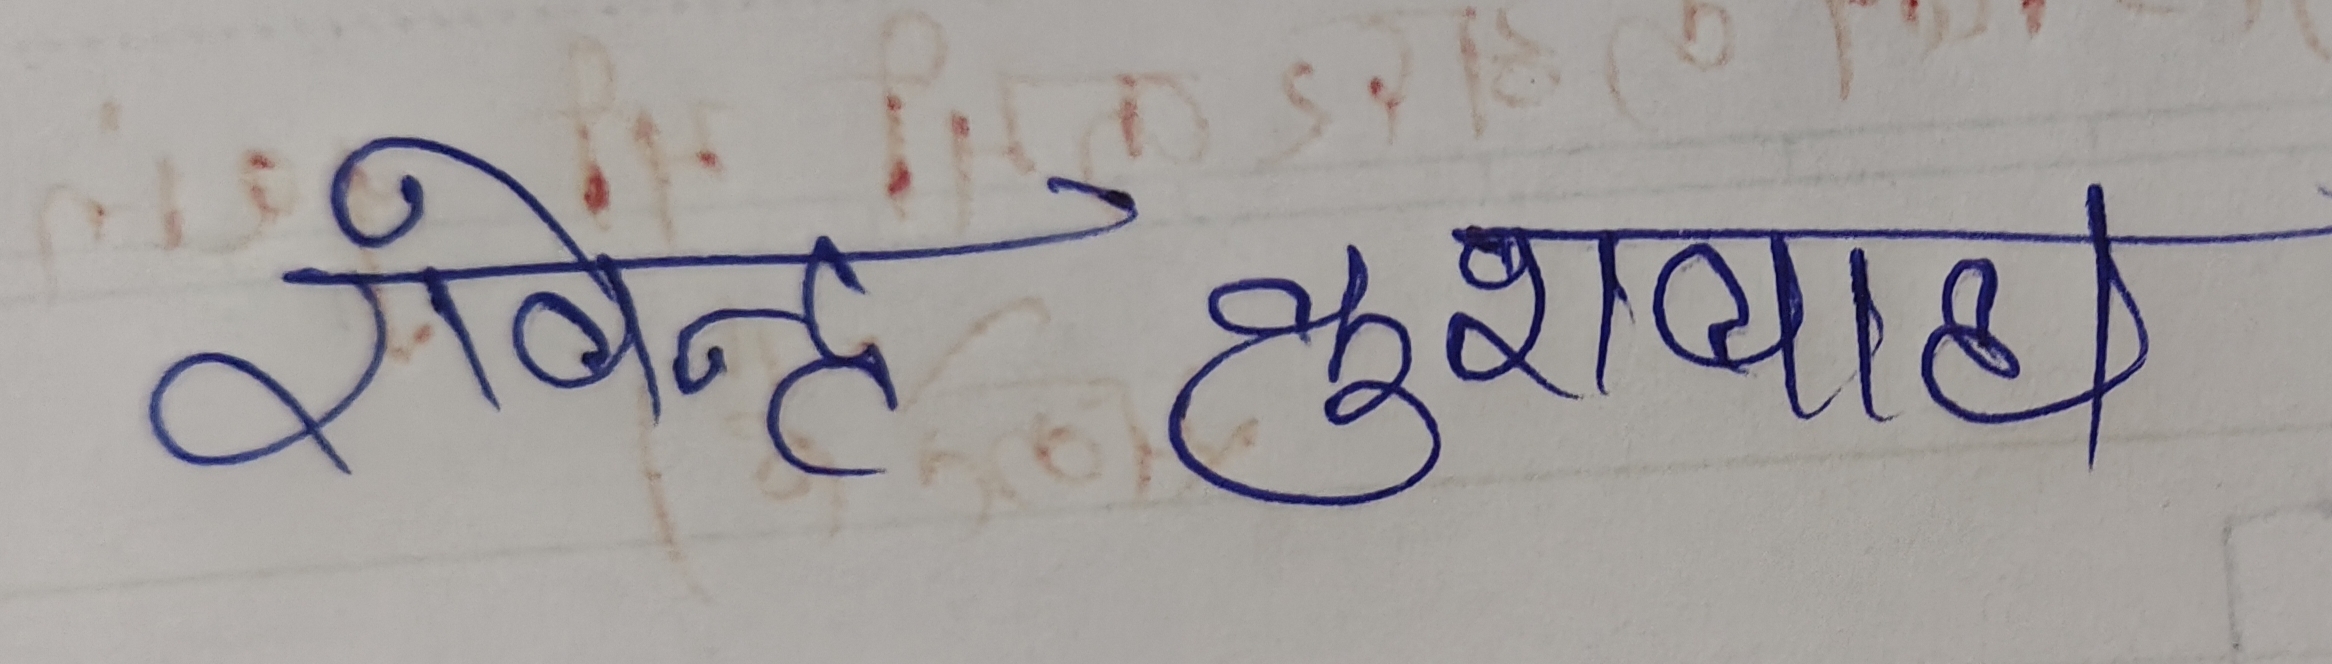 रावेन्द्र कुशवाहा